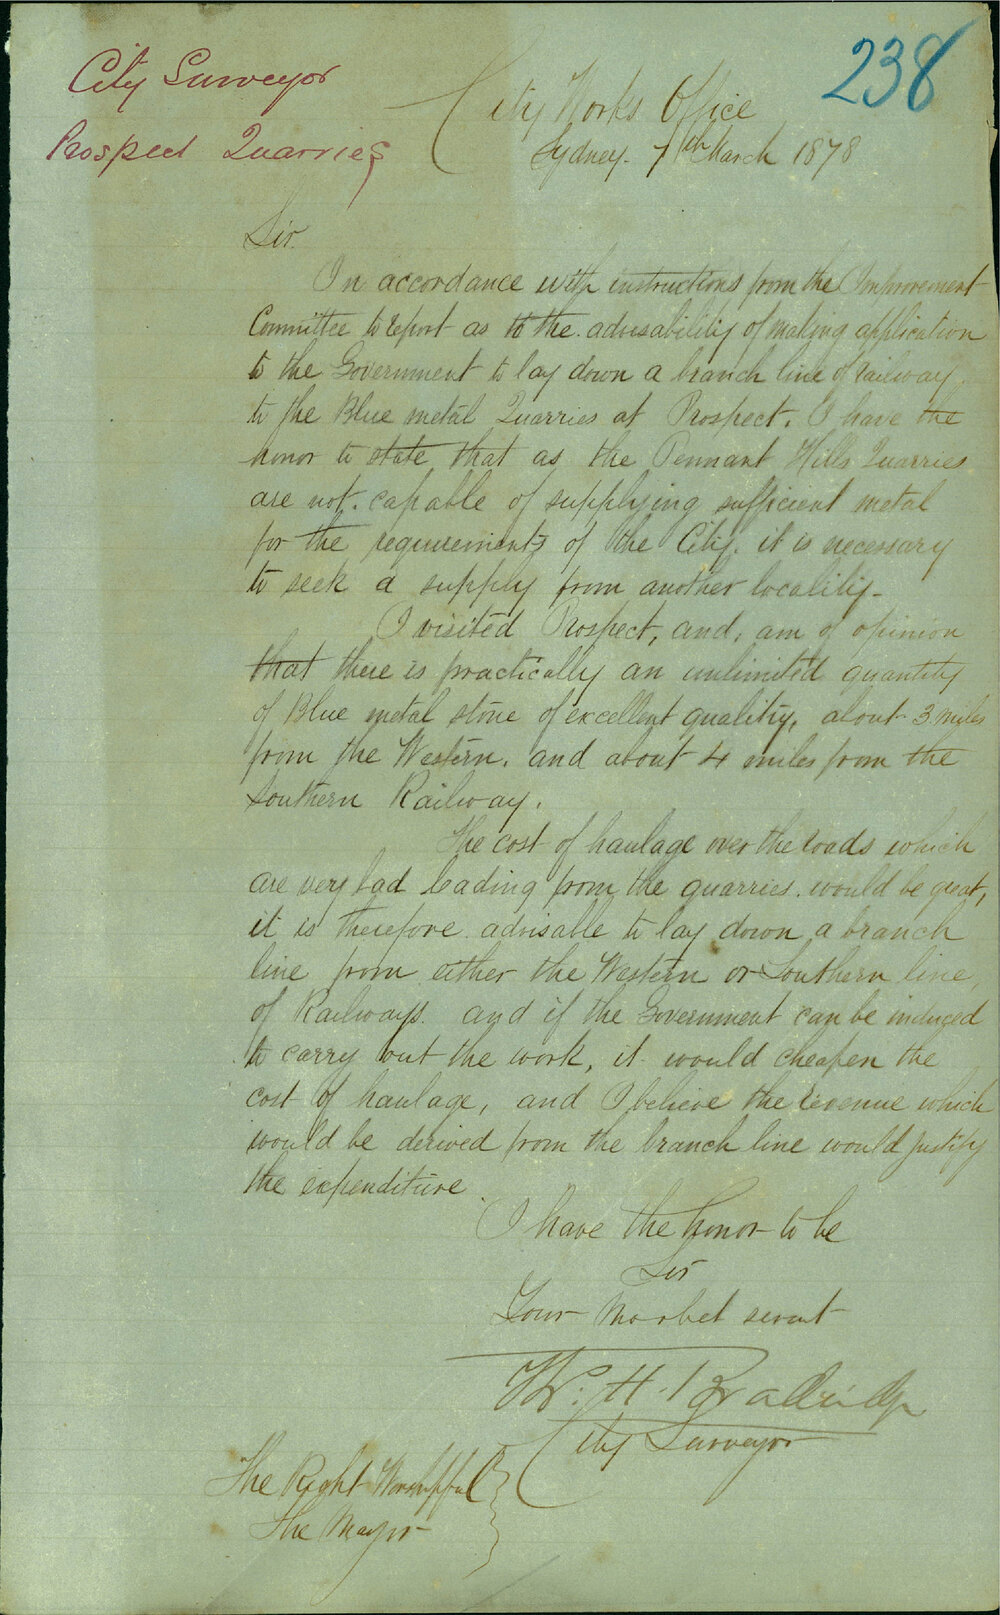 City Surveyor
Prospect Quarries
238
City Works Office
Sydney. 7th March 1878
Sir.
In accordance with instructions from the Improvement
Committee to report as to the advisability of making application
to the Government to lay down a branch line of railway,
to the Blue metal Quarries at Prospect. I have the
honor to state that as the Pennant Hills Quarries
are not capable of supplying sufficient metal
for the requirements of the City. it is necessary
to seek a supply from another locality-
I visited Prospect, and, am of opinion
that there is practically an unlimited quantity
of Blue metal stone of excellent quality, about 3 miles
from the Western. and about 4 miles from the
Southern Railway.
The cost of haulage over the roads which
are very bad leading from the quarries. would be great,
it is therefore advisable to lay down a branch
line from either the Western or Southern line,
of Railways. and if the Government can be induced
to carry out the work, it would cheapen the
cost of haulage, and I believe the revenue which
would be derived from the branch line would justify
the expenditure.
I have the honor to be
Sir
Your Mo obet servt
W. H. Bradridge
City Surveyor
The Right Worshipful
The Mayor